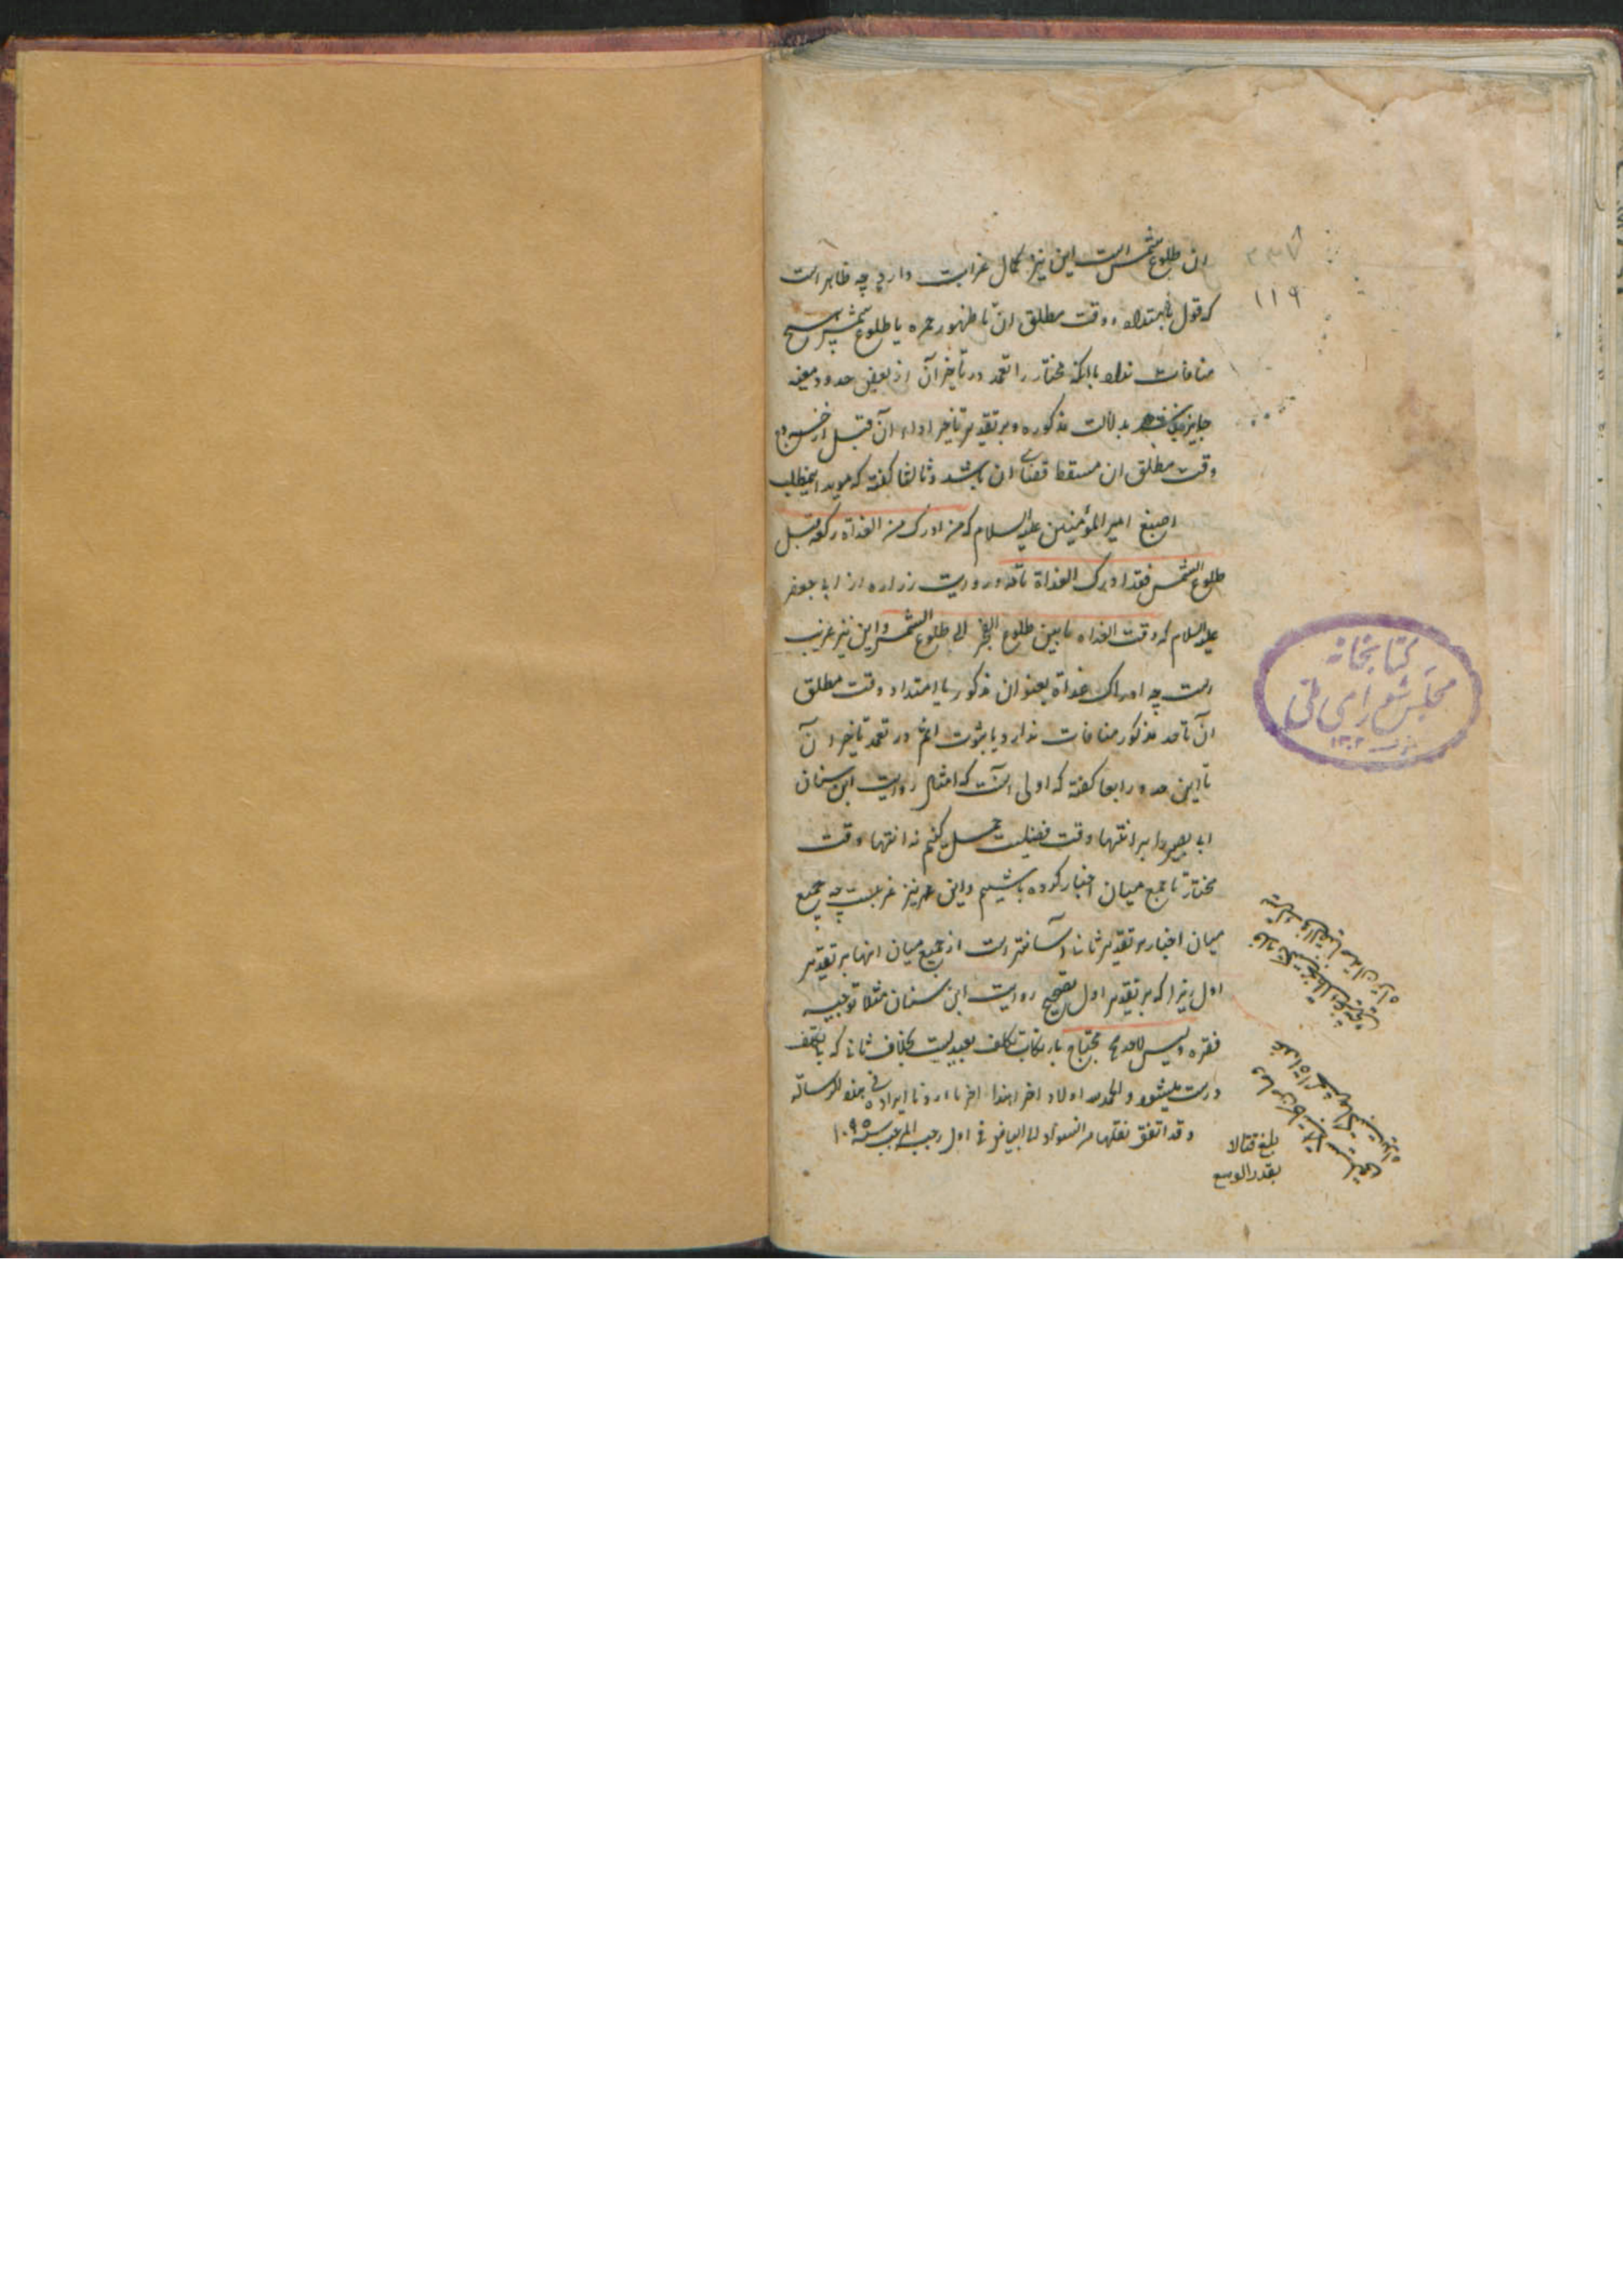 ان طلوع شمس است این نیز کمال غرابت دارد چه ظاهر است
که قول بامتداد وقت مطلق ان تا ظهور حمره یا طلوع شمس هیچ
منافات ندارد باانکه مختار را تعمد در تأخیر آن از بعض حدود معینه
جایز نباشد بدلالت مذکوره و بر تقدیر تأخیر اداء آن قبل از خروج
وقت مطلق ان مسقط قضای ان باشد و ثالثا گفته که موید اینمطلب
اصبغ امیر المؤمنین علیه السلام که من ادرک من الغداة رکعة قبل
طلوع الشمس فقد ادرک الغداة تامة و روایت زراره از ابی جعفر
علیه السلام که وقت الغداه ما بین طلوع الفجر الی طلوع الشمس و این نیز غریب
است چه ادراک غداة بعنوان مذکور با امتداد وقت مطلق
آن تا حد مذکور منافات ندارد با ثبوت اثم در تعمد تأخیر ان
تا این حد و رابعا گفته که اولی انست که امثال روایت ابن سنان
ابی بصیر را بر انتهاء وقت فضیلت حمل کنیم نه انتهاء وقت
مختار تا جمع میان اخبار کرده باشیم و این نیز غریبست چه جمع
میان اخبار بر تقدیر ثانی آسانتر است از جمع میان انها بر تقدیر
اول زیرا که بر تقدیر اول تصحیح روایت ابن سنان مثلا و توجیه
فقره و لیس لاحد محتاج بارتکاب تکلف بعیدیست بخلاف ثانی که بی تکلف
درست میشود و الحمد لله اولا و اخرا هذا اخر ما اردنا ایراده فی هذه الرسالة
و قد اتفق نقلها من السواد الی البیاض فی اول رجب المرجب سنه ۱۰۹۵
۳۳۷
۱۱۹
کتابخانه
مجلس شورای ملی
۱۳۰۲
بلغ قبالا
بقدر الوسع